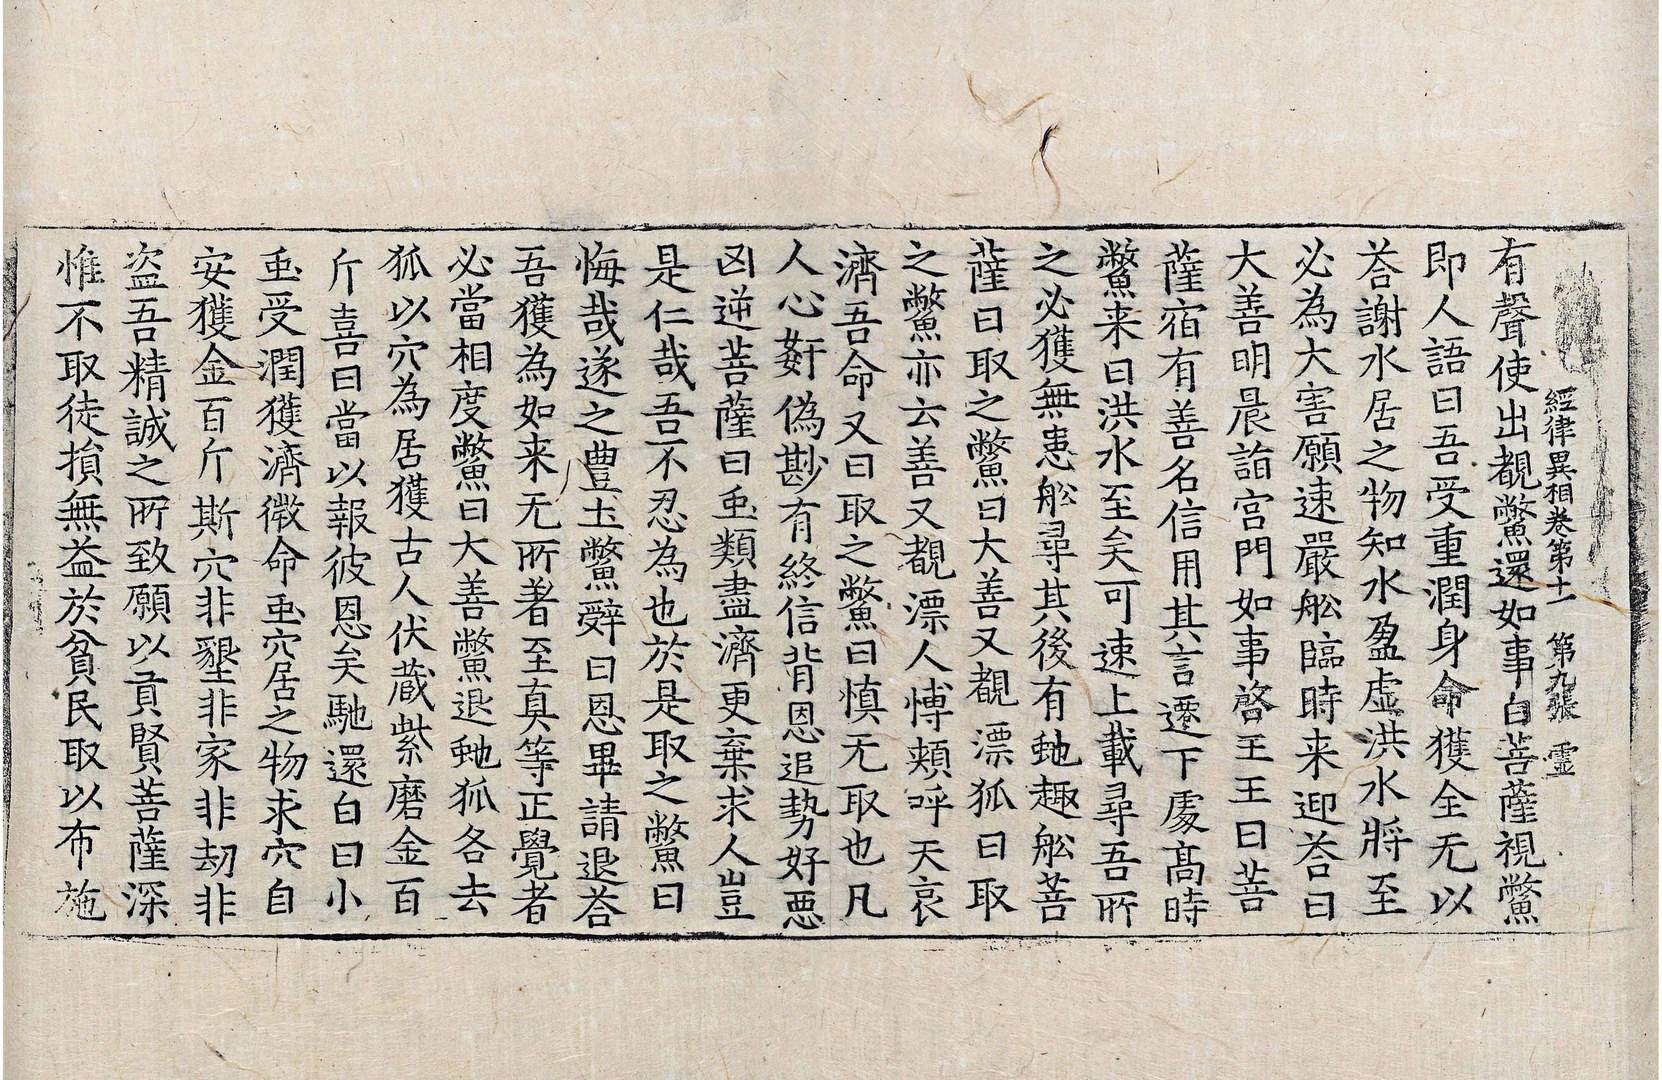 經律異相卷第十一 第九張 霊
有聲使出覩鱉還如事白菩薩視鱉
即人語曰吾受重潤身命獲全无以
荅謝水居之物知水盈虛洪水將至
必為大害願速嚴舩臨時来迎荅曰
大善明晨詣宮門如事啓王王曰菩
薩宿有善名信用其言遷下處髙時
鱉来曰洪水至矣可速上載尋吾所
之必獲無患舩尋其後有虵趣舩菩
薩曰取之鱉曰大善又覩漂狐曰取
之鱉亦云善又覩漂人慱頰呼天哀
濟吾命又曰取之鱉曰慎无取也凡
人心姧偽尠有終信背恩追勢好惡
凶逆菩薩曰虫類盡濟更棄求人豈
是仁哉吾不忍為也於是取之鱉曰
悔哉遂之豊土鱉辤曰恩畢請退荅
吾獲為如来无所著至真等正覺者
必當相度鱉曰大善鱉退虵狐各去
狐以穴為居獲古人伏蔵紫磨金百
斤喜曰當以報彼恩矣馳還白曰小
虫受潤獲濟微命虫穴居之物求穴自
安獲金百斤斯穴非壟非家非刧非
盜吾精誠之所致願以貢賢菩薩深
惟不取徒損無益於貧民取以布施